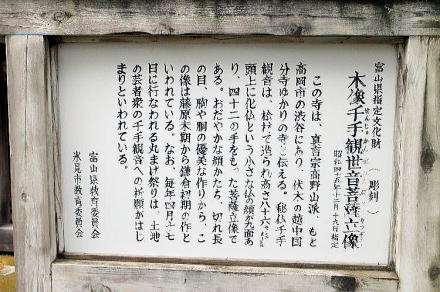 富山県指定文化財
木像千手観世音菩薩立像
(彫刻)
この寺は、真言宗高野山派、もと
高岡市の渋谷にあり、伏木の越中国
分寺ゆかりの寺と伝える。秘仏千手
観音は、桧材で造られ高さ八十六
頭上に化仏という小さな仏の顔が九面あ
り、四十二の手をもった菩薩立像で
ある。おだやかな顔かたち、切れ長
の目、胸や胴の優美な作りから、こ
の像は藤原末期から鎌倉初期の作と
いわれている。なお、毎年四月十七
日に行なわれる丸まげ祭りは、土地
の芸者衆の千手観音への祈願がはじ
まりといわれている。
富山県教育委員会
氷見市教育委員会